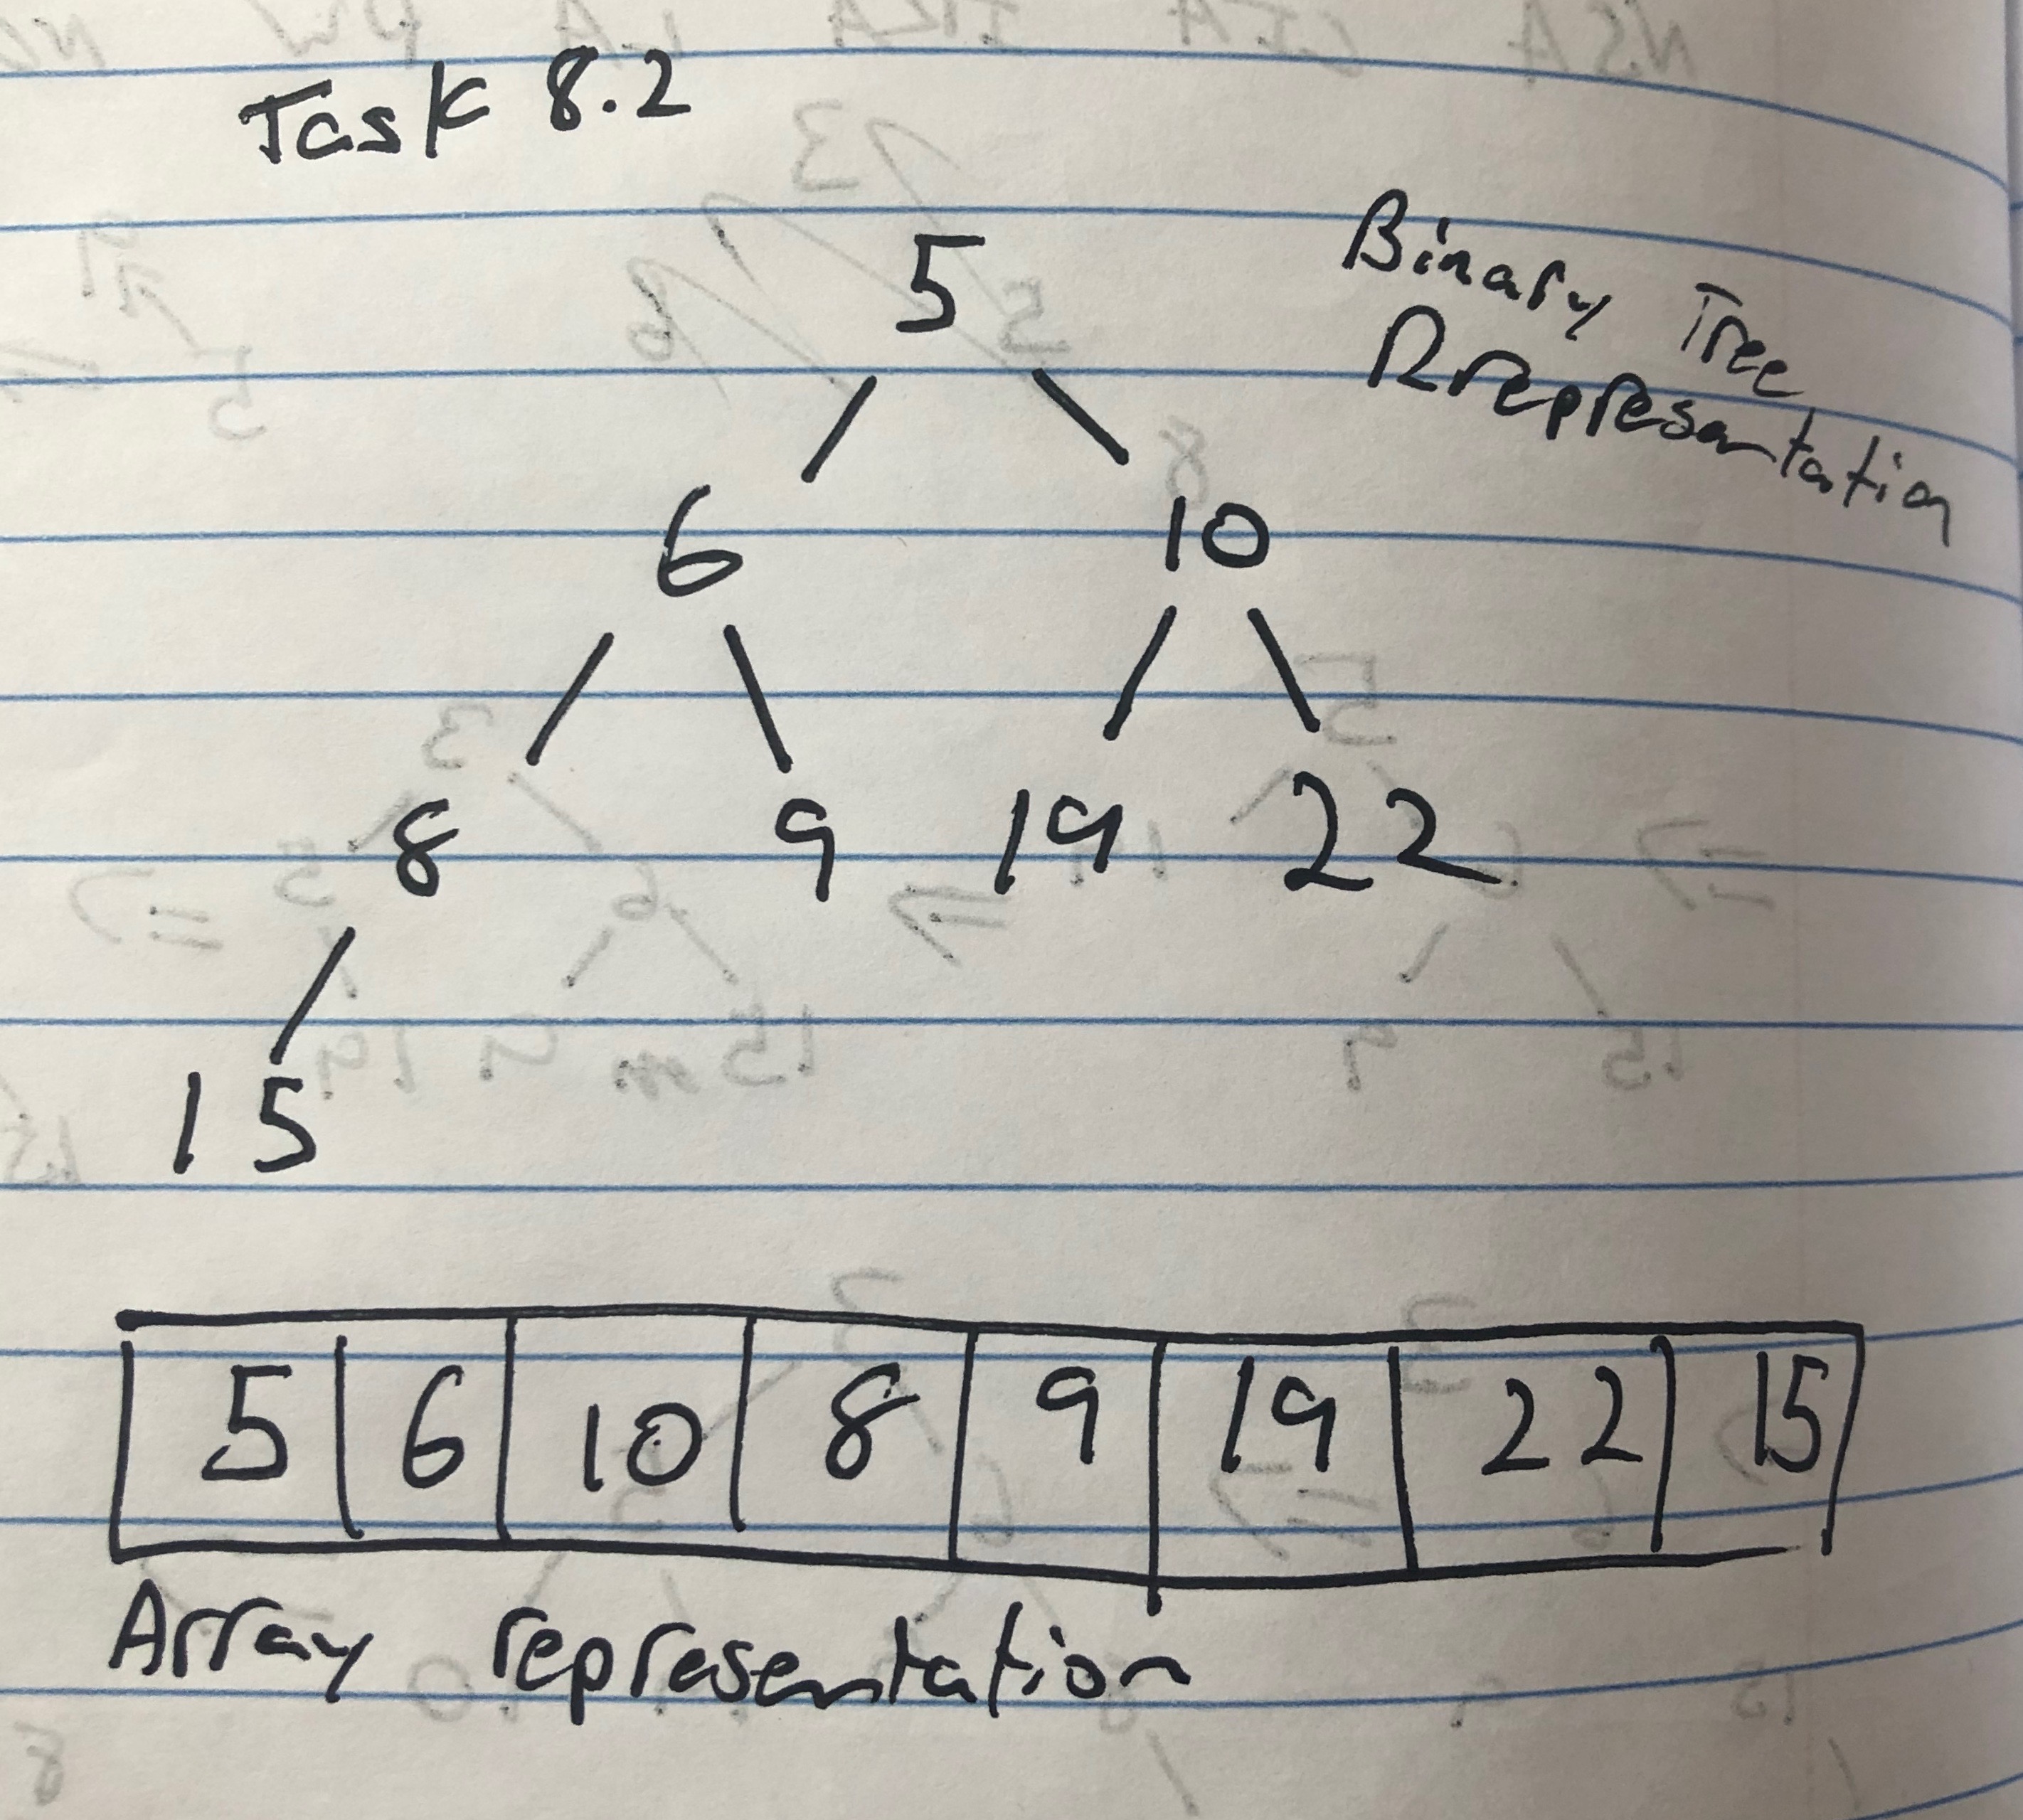 Task 8.2
Binary Tree
Rrepresentation
5
6 10
8 9 19 22
15
5 6 10 8 9 19 22 15
Array representation